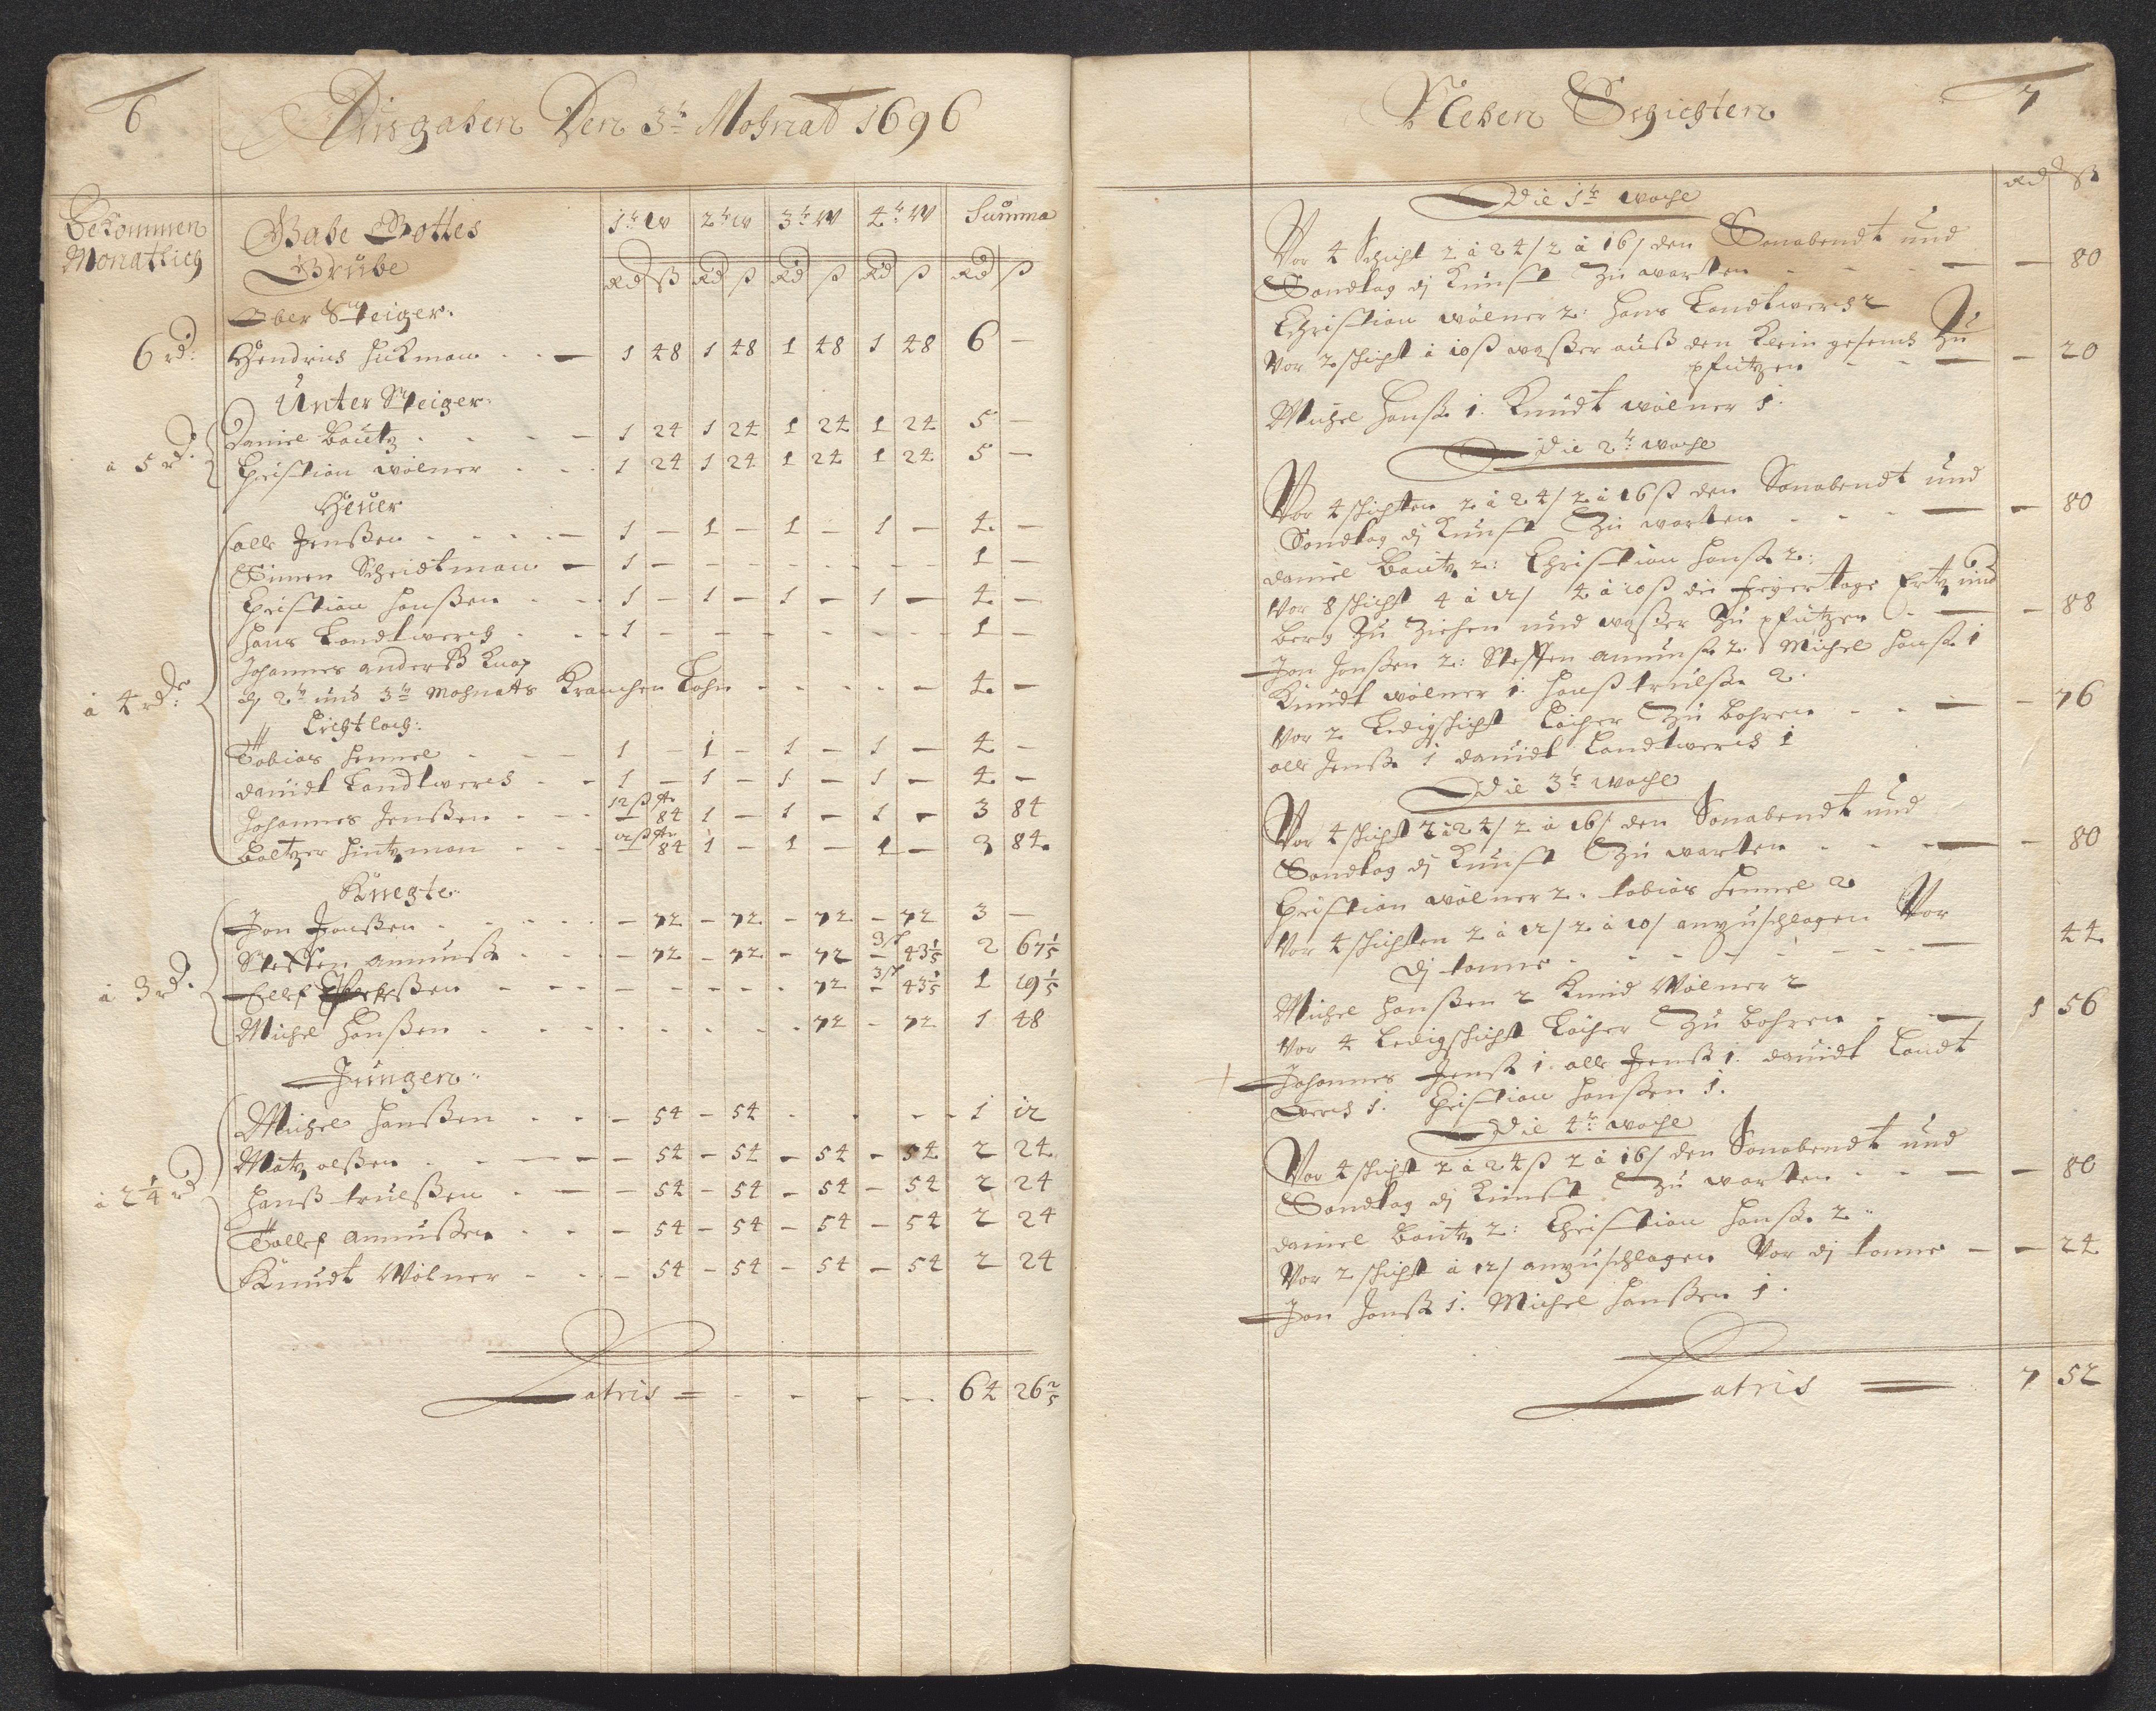 6
Ausgaben Den 3te Mohnat 1696
Bekommen
Monatlich
Gabe Gottes
Grube
1te W 2te W 3te W 4te W Summa
Rd ß Rd ß Rd ß Rd ß Rd ß
Ober Steiger.
6 rd: Hendrich Hickman - - 1 48 1 48 1 48 1 48 6 -
Unter Steiger.
à 5 rd. Daniel Bautz - - - 1 24 1 24 1 24 1 24 5 -
Christian Wölner - - 1 24 1 24 1 24 1 24 5 -
Heuer
à 4 rdr: olle Jenßen - - - - 1 - 1 - 1 - 1 - 4 -
Simen Schridtman - 1 - - - - - - - 1 -
Christian Hanßen - - 1 - 1 - 1 - 1 - 4 -
Hans Landtwerch - - 1 - - - - - - - 1 -
Johannes anderß Knap
dj 2te und 3te Mohnats Krancken Lohn - - - - - 4 -
Lichtloch:
Tobias Hennel - - - 1 - 1 - 1 - 1 - 4 -
dauidt Landtwerch - - 1 - 1 - 1 - 1 - 4 -
Johannes Jenßen - - - 12 ß - 84 1 - 1 - 1 - 3 84
Baltzer Hintzman - - - 12 ß - 84 1 - 1 - 1 - 3 84
Knegte
à 3 rd. Jon Jonßen - - - - - 72 - 72 - 72 - 72 3 -
Steffen amunß - - - 72 - 72 - 72 3/ - 43 1/5 2 67 1/5
Ellef - - - - - - 72 3/ - 43 1/5 1 19 1/5
Michel Hanßen - - - - - - - 72 - 72 1 48
Jungen
à 2 1/4 rd Michel Hanßen - - - 54 - 54 - - - - 1 12
Matz olßen - - - - - 54 - 54 - 54 - 54 2 24
Hanß trulßen - - - 54 - 54 - 54 - 54 2 24
Tollef amunßen - - - 54 - 54 - 54 - 54 2 24
Knudt Wölner - - - 54 - 54 - 54 - 54 2 24
Latris = - - - - 64 26 2/5
Neben Schichten
7
Rd ß
Die 1te woche
Vor 4 Schicht 2 à 24/ 2 à 16/ den Sonabendt und
Sondtag dj Kunst Zu warten - - - - 80
Christian wölner 2: Hans Landtwerch 2
Vor 2 schicht à 10 ß waßer auß den Klein gesench Zu
pfützen - - - 20
Michel Hanß 1. Knudt wölner 1.
Die 2te woche
Vor 4 schichten 2 à 24/ 2 à 16 ß den Sonabendt und
Sondtag dj Kunst Zu warten - - - - 80
daniel Bautz 2: Christian Hanß 2:
Vor 8 schicht 4 à 12/ 4 à 10 ß die feyertage Ertz und
berg Zu Ziehen und waßer Zu pfützen - - - 88
Jon Jonßen 2: Steffen amunß 2: Michel Hanß 1
Knudt wölner 1. Hanß trulß 2.
Vor 2 Ledigschicht Löcher Zu bohren - - - 76
olle Jenß 1 dauidt Landtwerch 1
Die 3te woche
Vor 4 schicht 2 à 24/ 2 à 16/ den Sonabendt und
Sondtag dj Kunst Zu warten - - - - 80
Christian wölner 2. tobias Hennel 2
Vor 4 schichten 2 à 12/ 2 à 10/ anzuschlagen Vor
dj tonne - - - - - - 44
Michel Hanßen 2 Knud Wölner 2
Vor 4 Ledigschicht Löcher Zu bohren - - 1 56
Johannes Jenß 1. olle Jenß 1. dauidt Landt
werch 1. Christian Hanßen 1.
Die 4te woche
Vor 4 schicht 2 à 24 ß 2 à 16/ den Sonabendt und
Sondtag dj Kunst Zu warten - - - - 80
daniel Bautz 2: Christian Hanß 2
Vor 2 schicht à 12/ anzuschlagen Vor dj tonne - - 24
Jon Jonß 1. Michel Hanßen 1.
Latris = 7 52